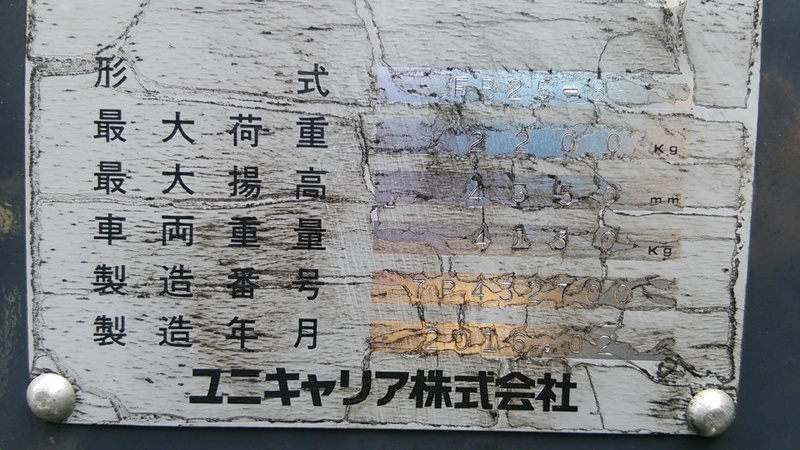 形式 FB25-8
最大荷重 2200 Kg
最大揚高 4350 mm
車両重量 4130 Kg
製造番号 7P432700
製造年月 2016.02
ユニキャリア株式会社